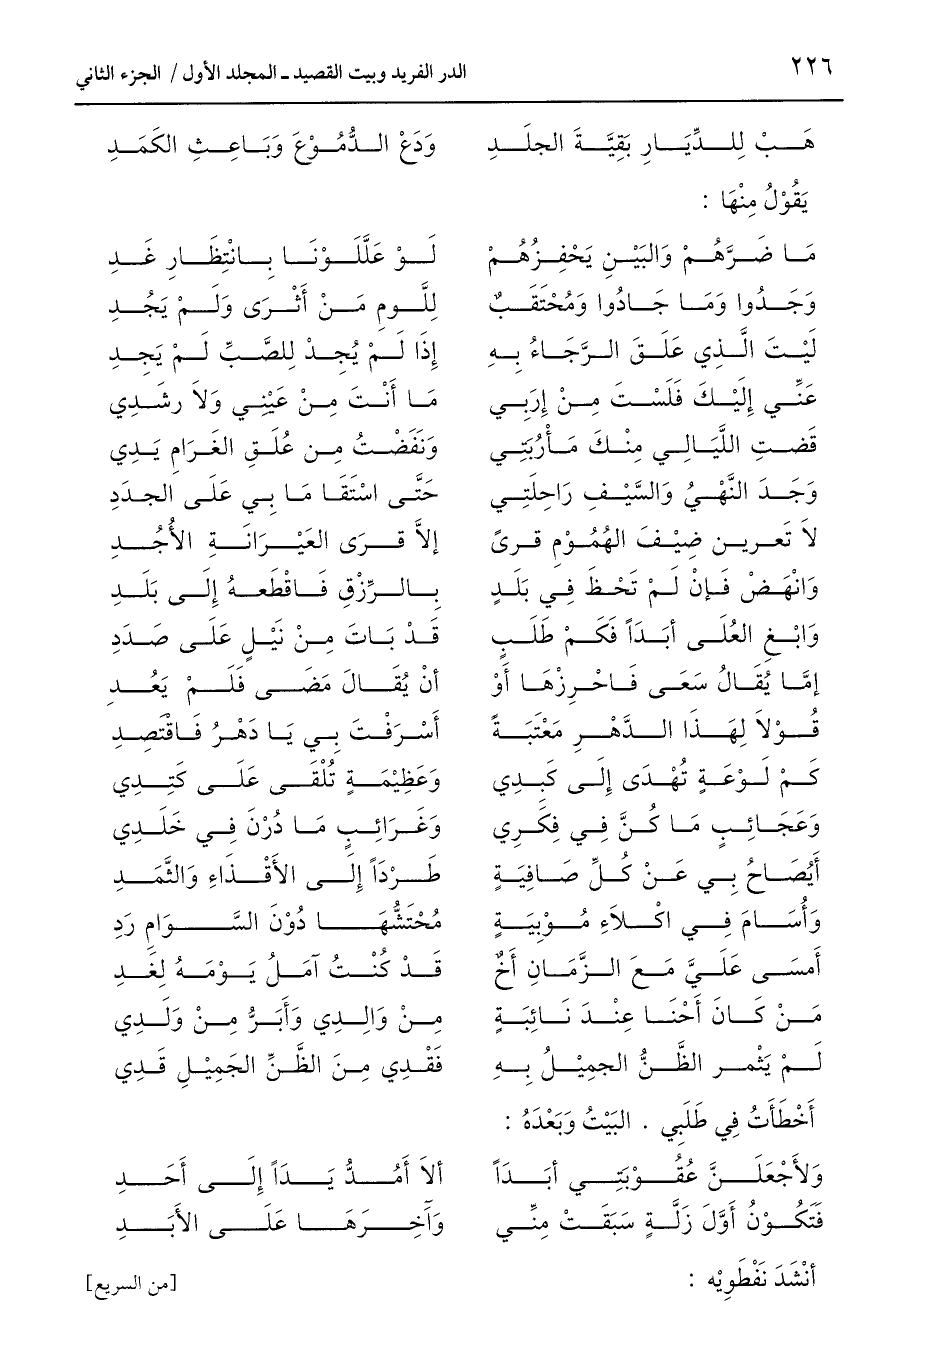 ٢٢٦ الدر الفريد وبيت القصيد ـ المجلد الأول / الجزء الثاني
هَبْ لِلدِّيَارِ بَقِيَّةَ الجَلَدِ وَدَعْ الدُّمُوْعَ وَبَاعِثَ الكَمَدِ
يَقُوْلُ مِنْهَا :
مَا ضَرَّهُمْ وَالبَيْنِ يَحْفِزُهُمْ لَوْ عَلَّلُوْنَا بِانْتِظَارِ غَدِ
وَجَدُوا وَمَا جَادُوا وَمُحْتَقِبٌ لِلُّومِ مَنْ أَثْرَى وَلَمْ يَجُدِ
لَيْتَ الَّذِي عَلَقَ الرَّجَاءُ بِهِ إِذَا لَمْ يُجِدْ لِلصَّبِّ لَمْ يَجِدِ
عَنِّي إِلَيْكَ فَلَسْتَ مِنْ إِرْبِي مَا أَنْتَ مِنْ غَيِّي وَلاَ رَشَدِي
قَضَتِ اللَّيَالِي مِنْكَ مَأرُبَتِي وَنَفَضْتُ مِن عُلَقِ الغَرَامِ يَدِي
وَخَدَ النُّهَى وَالشَّيْبُ رَاحِلَتِي حَتَّى اسْتَقَا مَا بِي عَلَى الجدَدِ
لاَ تَعرِيَن ضَيْفَ الهُمُوْمِ قِرَىً إلاَّ قِرَى العَيْرَانَةِ الأُجُدِ
وَانْهَضْ فَإِنْ لَمْ تَحْظَ فِي بَلَدٍ بِالرِّزْقِ فَاقْطَعهُ إِلَى بَلَدِ
وَابْغِ العُلَى أَبَدَاً فَكَمْ طَلَبٍ قَدْ بَاتَ مِنْ نَيْلٍ عَلَى صَدَدِ
إِمَّا يُقَالُ سَعَى فَاحرزهَا أَوْ أَنْ يُقَالَ مَضَى فَلَمْ يَعُدِ
قُوْلاَ لِهَذَا الدَّهْرِ مَعْتَبَةً أَسْرَفْتَ بِي يَا دَهْرُ فَاقْتَصِدِ
كَمْ لَوْعَةٍ تُهْدَى إِلَى كَبِدِي وَعَظِيْمَةٍ تُلْقَى عَلَى كَتِدِي
وَعَجَائِبٍ مَا كُنَّ فِي فِكَرِي وَغَرَائِبٍ مَا دُرْنَ فِي خَلَدِي
أَيُصَاحُ بِي عَنْ كُلِّ صَافِيَةٍ طَرْدَاً إِلَى الأَقْذَاءِ وَالثَّمَدِ
وَأُسَامُ فِي اكْلاَءِ مُوْبِيَةٍ مُحْتَشُّهَا دُوْنَ السَّوَامِ رَدِ
أَمْسَى عَلَيَّ مَعَ الزَّمَانِ أَخٌ قَدْ كُنْتُ آمَلُ يَوْمَهُ لِغَدِ
مَنْ كَانَ أَحْنَا عِنْدَ نَائِبَةٍ مِنْ وَالِدِي وَأَبَرُّ مِنْ وَلَدِي
لَمْ يُثْمِرِ الظَّنُّ الجمِيْلُ بِهِ فَقْدِي مِنَ الظَّنِّ الجمِيْلِ قَدِي
أَخْطَأْتُ فِي طَلَبِي . البَيْتُ وَبَعْدَهُ :
وَلأَجْعَلَنَّ عُقُوْبَتِي أَبَدَاً أَلاَ أَمُدَّ يَدَاً إِلَى أَحَدِ
فَتَكُوْنُ أَوَّلَ زَلَّةٍ سَبَقَتْ مِنِّي وَآخِرَهَا عَلَى الأَبَدِ
أَنْشَدَ نَفْطَوِيْهِ : [من السريع]